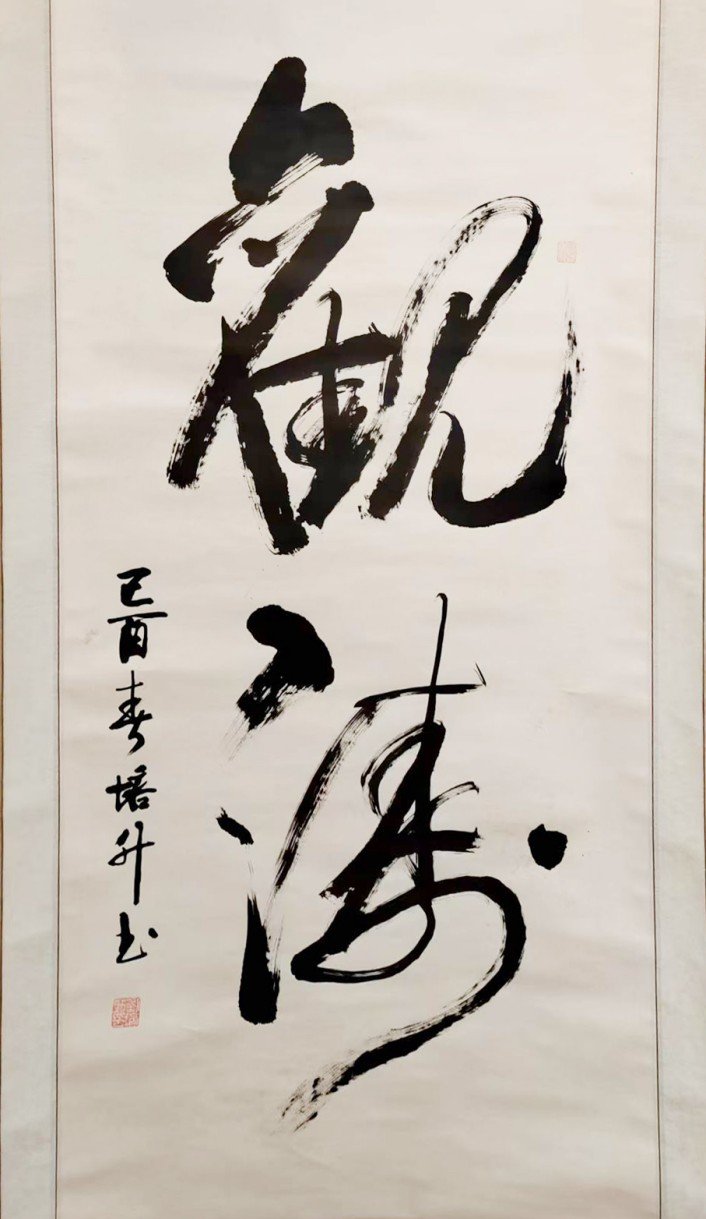 觀濤
己酉春培升书